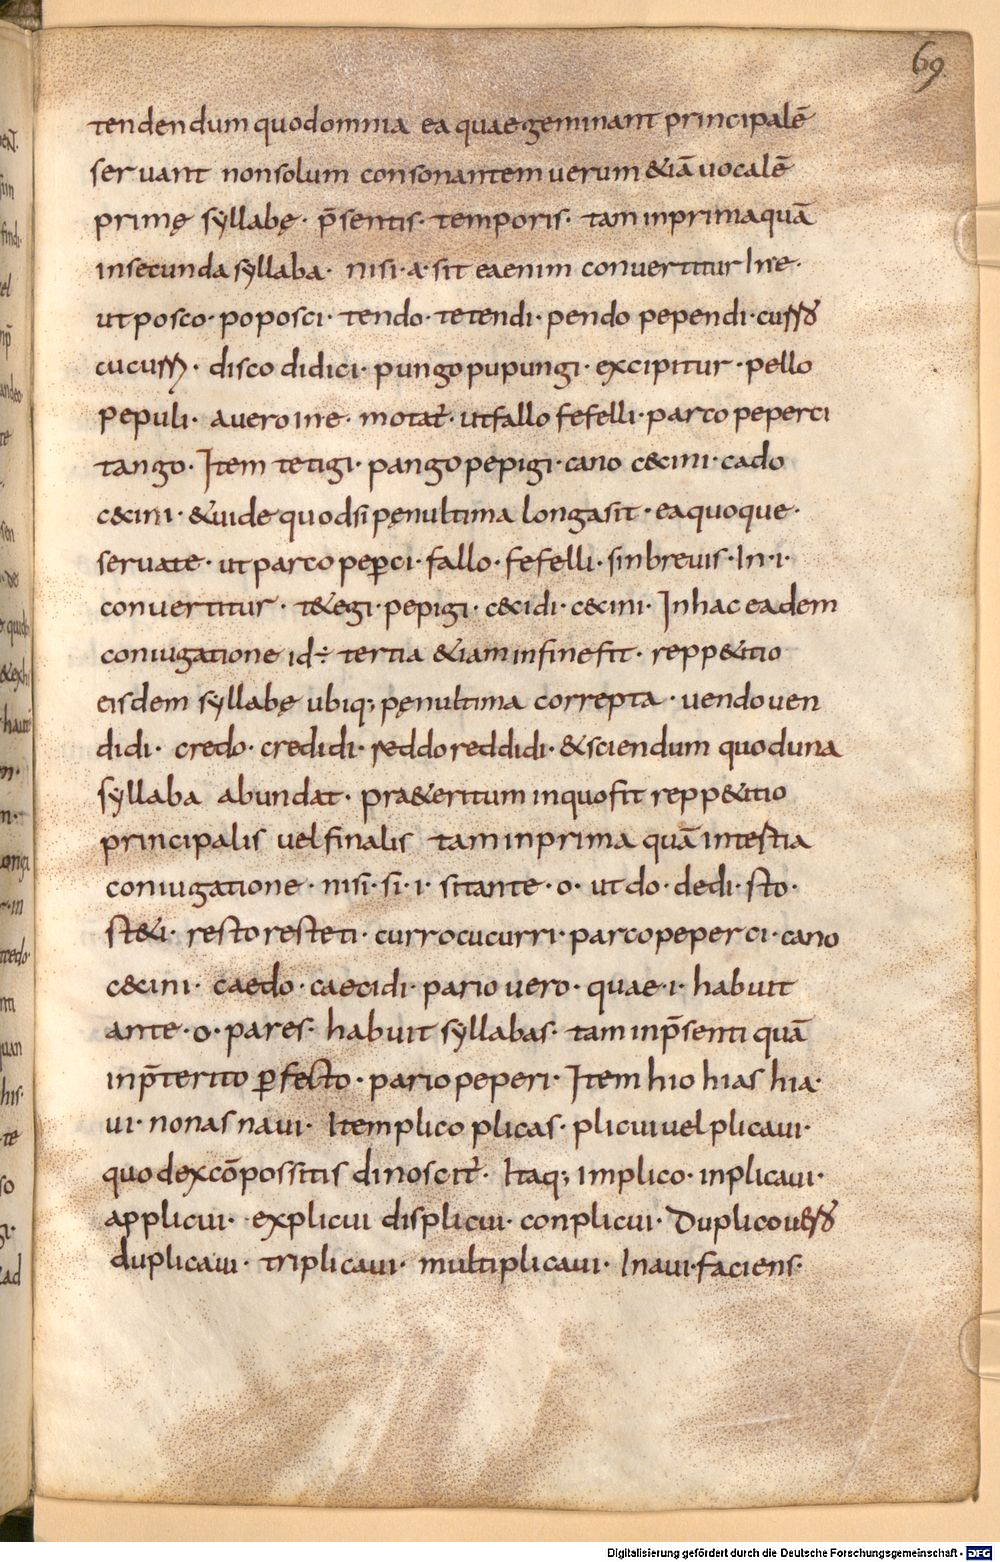 69
tendendum quodomnia ea quae geminant principalē
seruant non solum consonantem uerum &iā uocalē
primę syllabę· p̄sentis· temporis· tam inprima quā
insecunda syllaba· nisi·a·sit ea enim conuertitur In·e·
ut posco· poposci· tendo· tetendi· pendo pependi·
disco didici· pungo pupungi· excipitur· pello
pepuli· a uero in·e· motat̄· ut fallo fefelli· parco peperci
tango· Item tetigi· pango pepigi· cano c&cini· cado
c&cini· &uide quodsi pęnultima longa sit· ea quoque·
seruate· ut parco peꝑci· fallo· fefelli· sin breuis· In·i·
conuertitur· t&egi· pepigi· c&cidi· c&cini· Inhac eadem
coniugatione id÷ tertia &iam infine fit· repp&itio
eisdem syllabę ubiq; pęnultima correpta· uendo uen
didi· credo· credidi· reddo reddidi· &sciendum quod una
syllaba abundat· pra&eritum inquo fit repp&itio
principalis uel finalis tam inprima quā intestia
coniugatione· nisi·si·i· sit ante·o· ut do· dedi· sto·
st&i· resto resteti· curro cucurri· parco peperci· cano
c&cini· caedo· caecidi· pario uero· quae·i· habuit
ante·o· pares· habuit syllabas· tam inp̄senti quā
inp̄terito ꝑfecto· pario peperi· Item hio hias hia·
ui· no nas naui· Item plico plicas· plicui uel plicaui·
quod excōpossitis dinoscit̄· Itaq; implico· inplicaui·
applicui· explicui displicui· conplicui· Duplico
duplicaui· triplicaui· multiplicaui· Inaui·faciens·
Digitalisierung gefördert durch die Deutsche Forschungsgemeinschaft - DFG